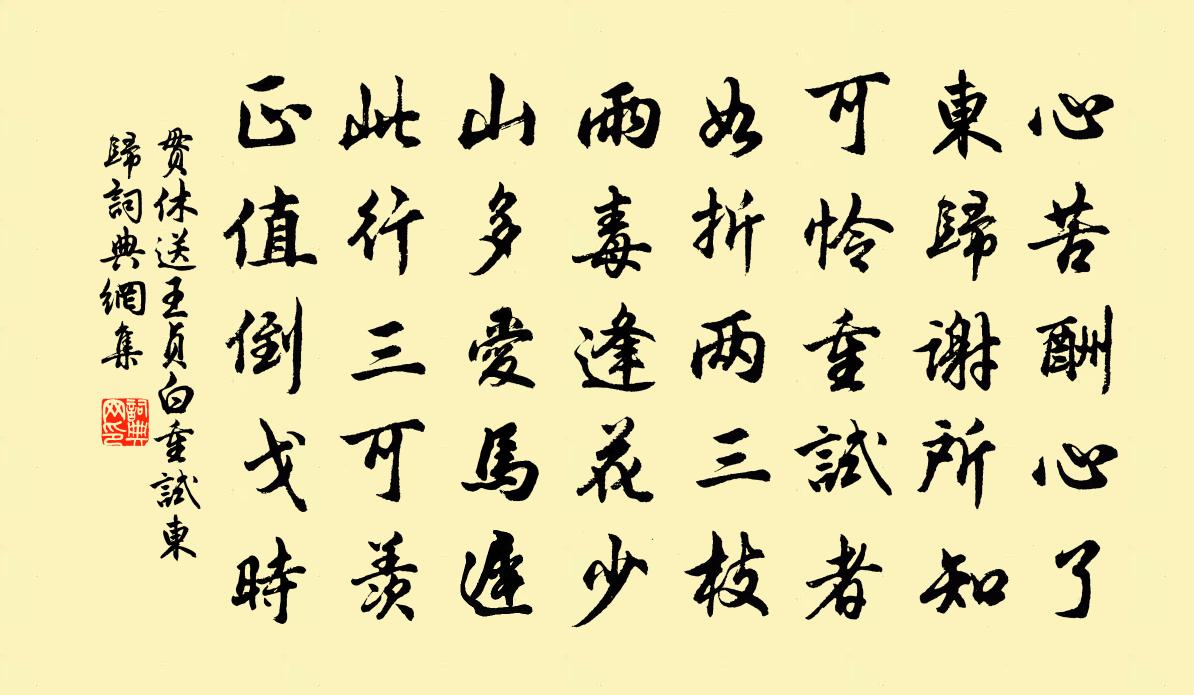 心苦酬心了
東歸謝所知
可怜重試者
如折两三枝
雨毒逢花少
山多愛馬遲
此行三可羨
正值倒戈時
貫休送王貞白重試東
歸詞典網集
詞典
网印